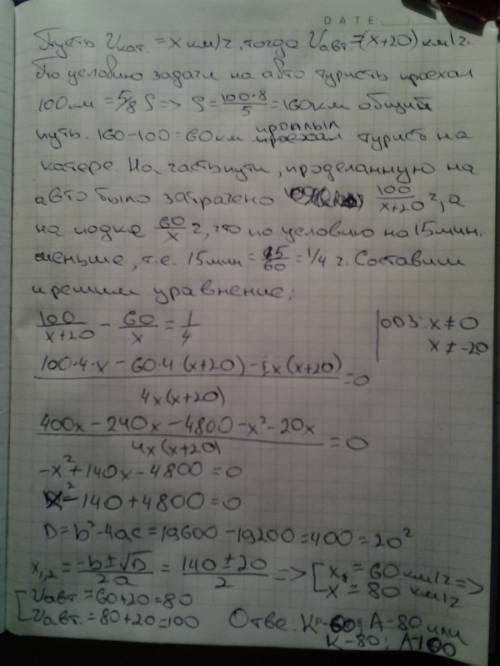 DATE
Пусть Vкат. = x км/ч, тогда Vавт. = (x+20) км/ч.
По условию задачи на авто турист проехал
100 км = 5/8 S => S = 100·8/5 = 160 км общий
путь. 160-100=60 км проплыл турист на
катере. На часть пути, проделанную на
авто было затрачено 100/x+20 ч, а
на лодке 60/x ч, что по условию на 15 мин.
меньше, т.е. 15 мин = 15/60 = 1/4 ч. Составим
и решим уравнение:
100/x+20 - 60/x = 1/4 ОДЗ: x ≠ 0
x ≠ -20
100·4·x - 60·4(x+20) - x(x+20)/4x(x+20) = 0
400x - 240x - 4800 - x² - 20x/4x(x+20) = 0
-x² + 140x - 4800 = 0
x² - 140 + 4800 = 0
D = b² - 4ac = 19600 - 19200 = 400 = 20²
x1,2 = -b±√D/2a = 140±20/2 => [x = 60 км/ч =>
x = 80 км/ч
[Vавт. = 60+20 = 80
Vавт. = 80+20 = 100 Ответ. К-60; А-80 или
К-80; А-100